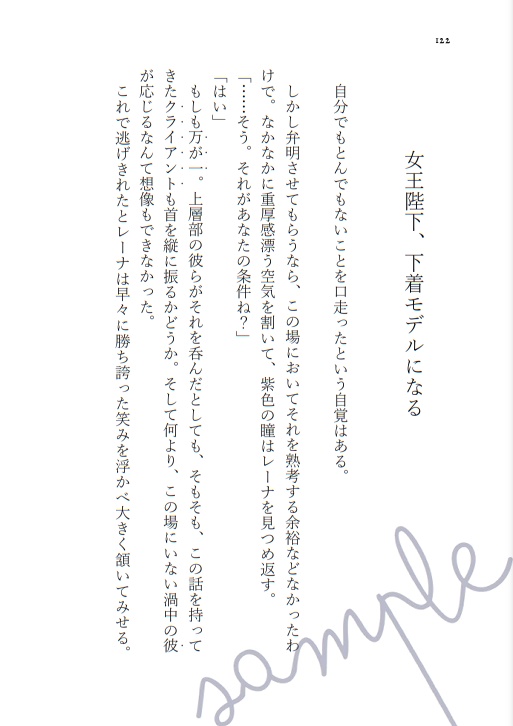 122
女王陛下、下着モデルになる
自分でもとんでもないことを口走ったという自覚はある。
しかし弁明させてもらうなら、この場においてそれを熟考する余裕などなかったわ
けで。なかなかに重厚感漂う空気を割いて、紫色の瞳はレーナを見つめ返す。
「……そう。それがあなたの条件ね？」
「はい」
もしも万が一。上層部の彼らがそれを呑んだとしても、そもそも、この話を持って
きたクライアントも首を縦に振るかどうか。そして何より、この場にいない渦中の彼
が応じるなんて想像もできなかった。
これで逃げきれたとレーナは早々に勝ち誇った笑みを浮かべ大きく頷いてみせる。
sample